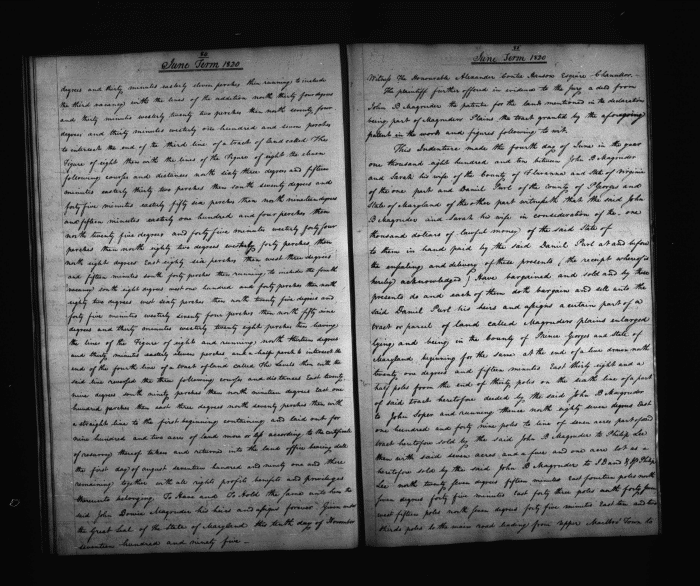 80
June Term 1820
degrees and thirty minutes easterly eleven perches then running to include
the third vacancy with the lines of the addition north thirty four degrees
and thirty minutes westerly twenty two perches then north seventy four
degrees and thirty minutes westerly one hundred and seven perches
to intersect the end of the third line of a tract of land called The
Figure of eight then with the lines of the Figure of eight the eleven
following courses and distances north sixty three degrees and fifteen
minutes easterly thirty two perches then south seventy degrees and
forty five minutes easterly fifty six perches then north nineteen degrees
and fifteen minutes easterly one hundred and four perches then
north twenty five degrees and forty five minutes westerly forty four
perches then north eighty two degrees westerly forty perches then
north eight degrees east eighty six perches then west three degrees
and fifteen minutes south forty perches then running to include the fourth
vacancy south eight degrees west one hundred and forty perches then north
eighty two degrees west sixty perches then north twenty five degrees and
forty five minutes westerly seventy four perches then north fifty nine
degrees and thirty minutes westerly twenty eight perches then leaving
the lines of the Figure of eight and running north thirteen degrees
and thirty minutes easterly eleven perches and a half perch to intersect the
end of the fourth line of a tract of land called The Levels then with the
said line reversed the three following courses and distances East twenty
nine degrees south ninety perches then north nineteen degrees east one
hundred perches then east three degrees north seventy perches then with
a straight line to the first beginning containing and laid out for
nine hundred and two acres of land more or less according to the certificate
of resurvey thereof taken and returned into the land office bearing date
the first day of august seventeen hundred and ninety one and there
remaining together with all rights profits benefits and privileges
thereunto belonging. To Have and To Hold the same unto him the
said John Bowie Magruder his heirs and assigns forever. Given under
the Great Seal of the State of Maryland this tenth day of November
seventeen hundred and ninety five —
81
June Term 1820
Witness The Honourable Alexander Contee Hanson Esquire Chancellor —
The plaintiff further offered in evidence to the jury a deed from
John B Magruder the patentee for the lands mentioned in the declaration
being part of Magruders Plains the tract granted by the aforegoing
patent in the words and figures following to wit.
This Indenture made the fourth day of June in the year
one thousand eight hundred and ten between John B Magruder
and Sarah his wife of the County of Fluvanna and State of Virginia
of the one part and Daniel Purl of the County of P Georges and
State of Maryland of the other part witnesseth that the said John
B Magruder and Sarah his wife in consideration of the one
thousand dollars of lawful money of the said State of
to them in hand paid by the said Daniel Purl at and before
the ensealing and delivery of these presents (the receipt whereof is
hereby acknowledged) Have bargained and sold and by these
presents do and each of them doth bargain and sell unto the
said Daniel Purl his heirs and assigns a certain part of a
tract or parcel of land called Magruders plains enlarged
lying and being in the County of Prince Georges and State of
Maryland beginning for the same at the end of a line drawn north
twenty one degrees and fifteen minutes East thirty eight and a
half poles from the end of thirty poles on the line of a part
of said tract heretofore deeded by the said John B Magruder
to John Soper and running thence north eighty seven degrees east
one hundred and forty nine poles to line of seven acres part of said
tract heretofore sold by the said John B Magruder to Philip Lee
then with said seven acres and a five and one acre lot as
heretofore sold by the said John B Magruder to Philip
Lee north twenty four degrees fifteen minutes east fourteen poles north
four degrees forty five minutes east forty three poles north forty four
west fifteen poles north four degrees forty five minutes east ten and two
thirds poles to the main road leading from upper Marlbro Town to